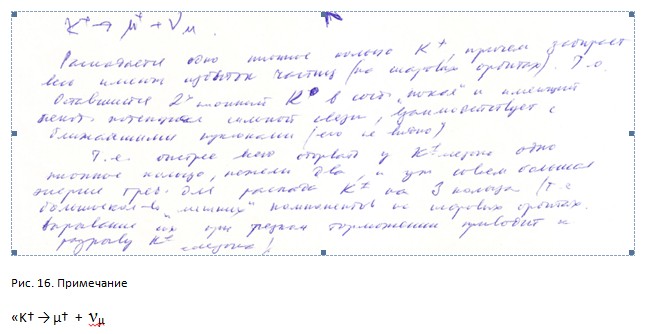 K⁺ → μ⁺ + ν μ.
Распадается одно пионное кольцо K⁺, причем забирает
весь избыток частиц (на шаровых орбитах). Т.о.
Оставшийся 2ˣ пионный K⁰ в сост. "покоя" и имеющий
потенциал сильной связи, взаимодействует с
ближайшими нуклонами (его не видно)
Т.е. быстрее всего оторвать у K± мезона одно
пионное кольцо, нежели два, и уж совсем большая
энергия треб. для распада K± на 3 кольца (т.е
"лишних" компонентов на шаровых орбитах.
их при резком торможении приводит к
разрыву K± мезона!
Рис. 16. Примечание
«K† → μ† + νμ